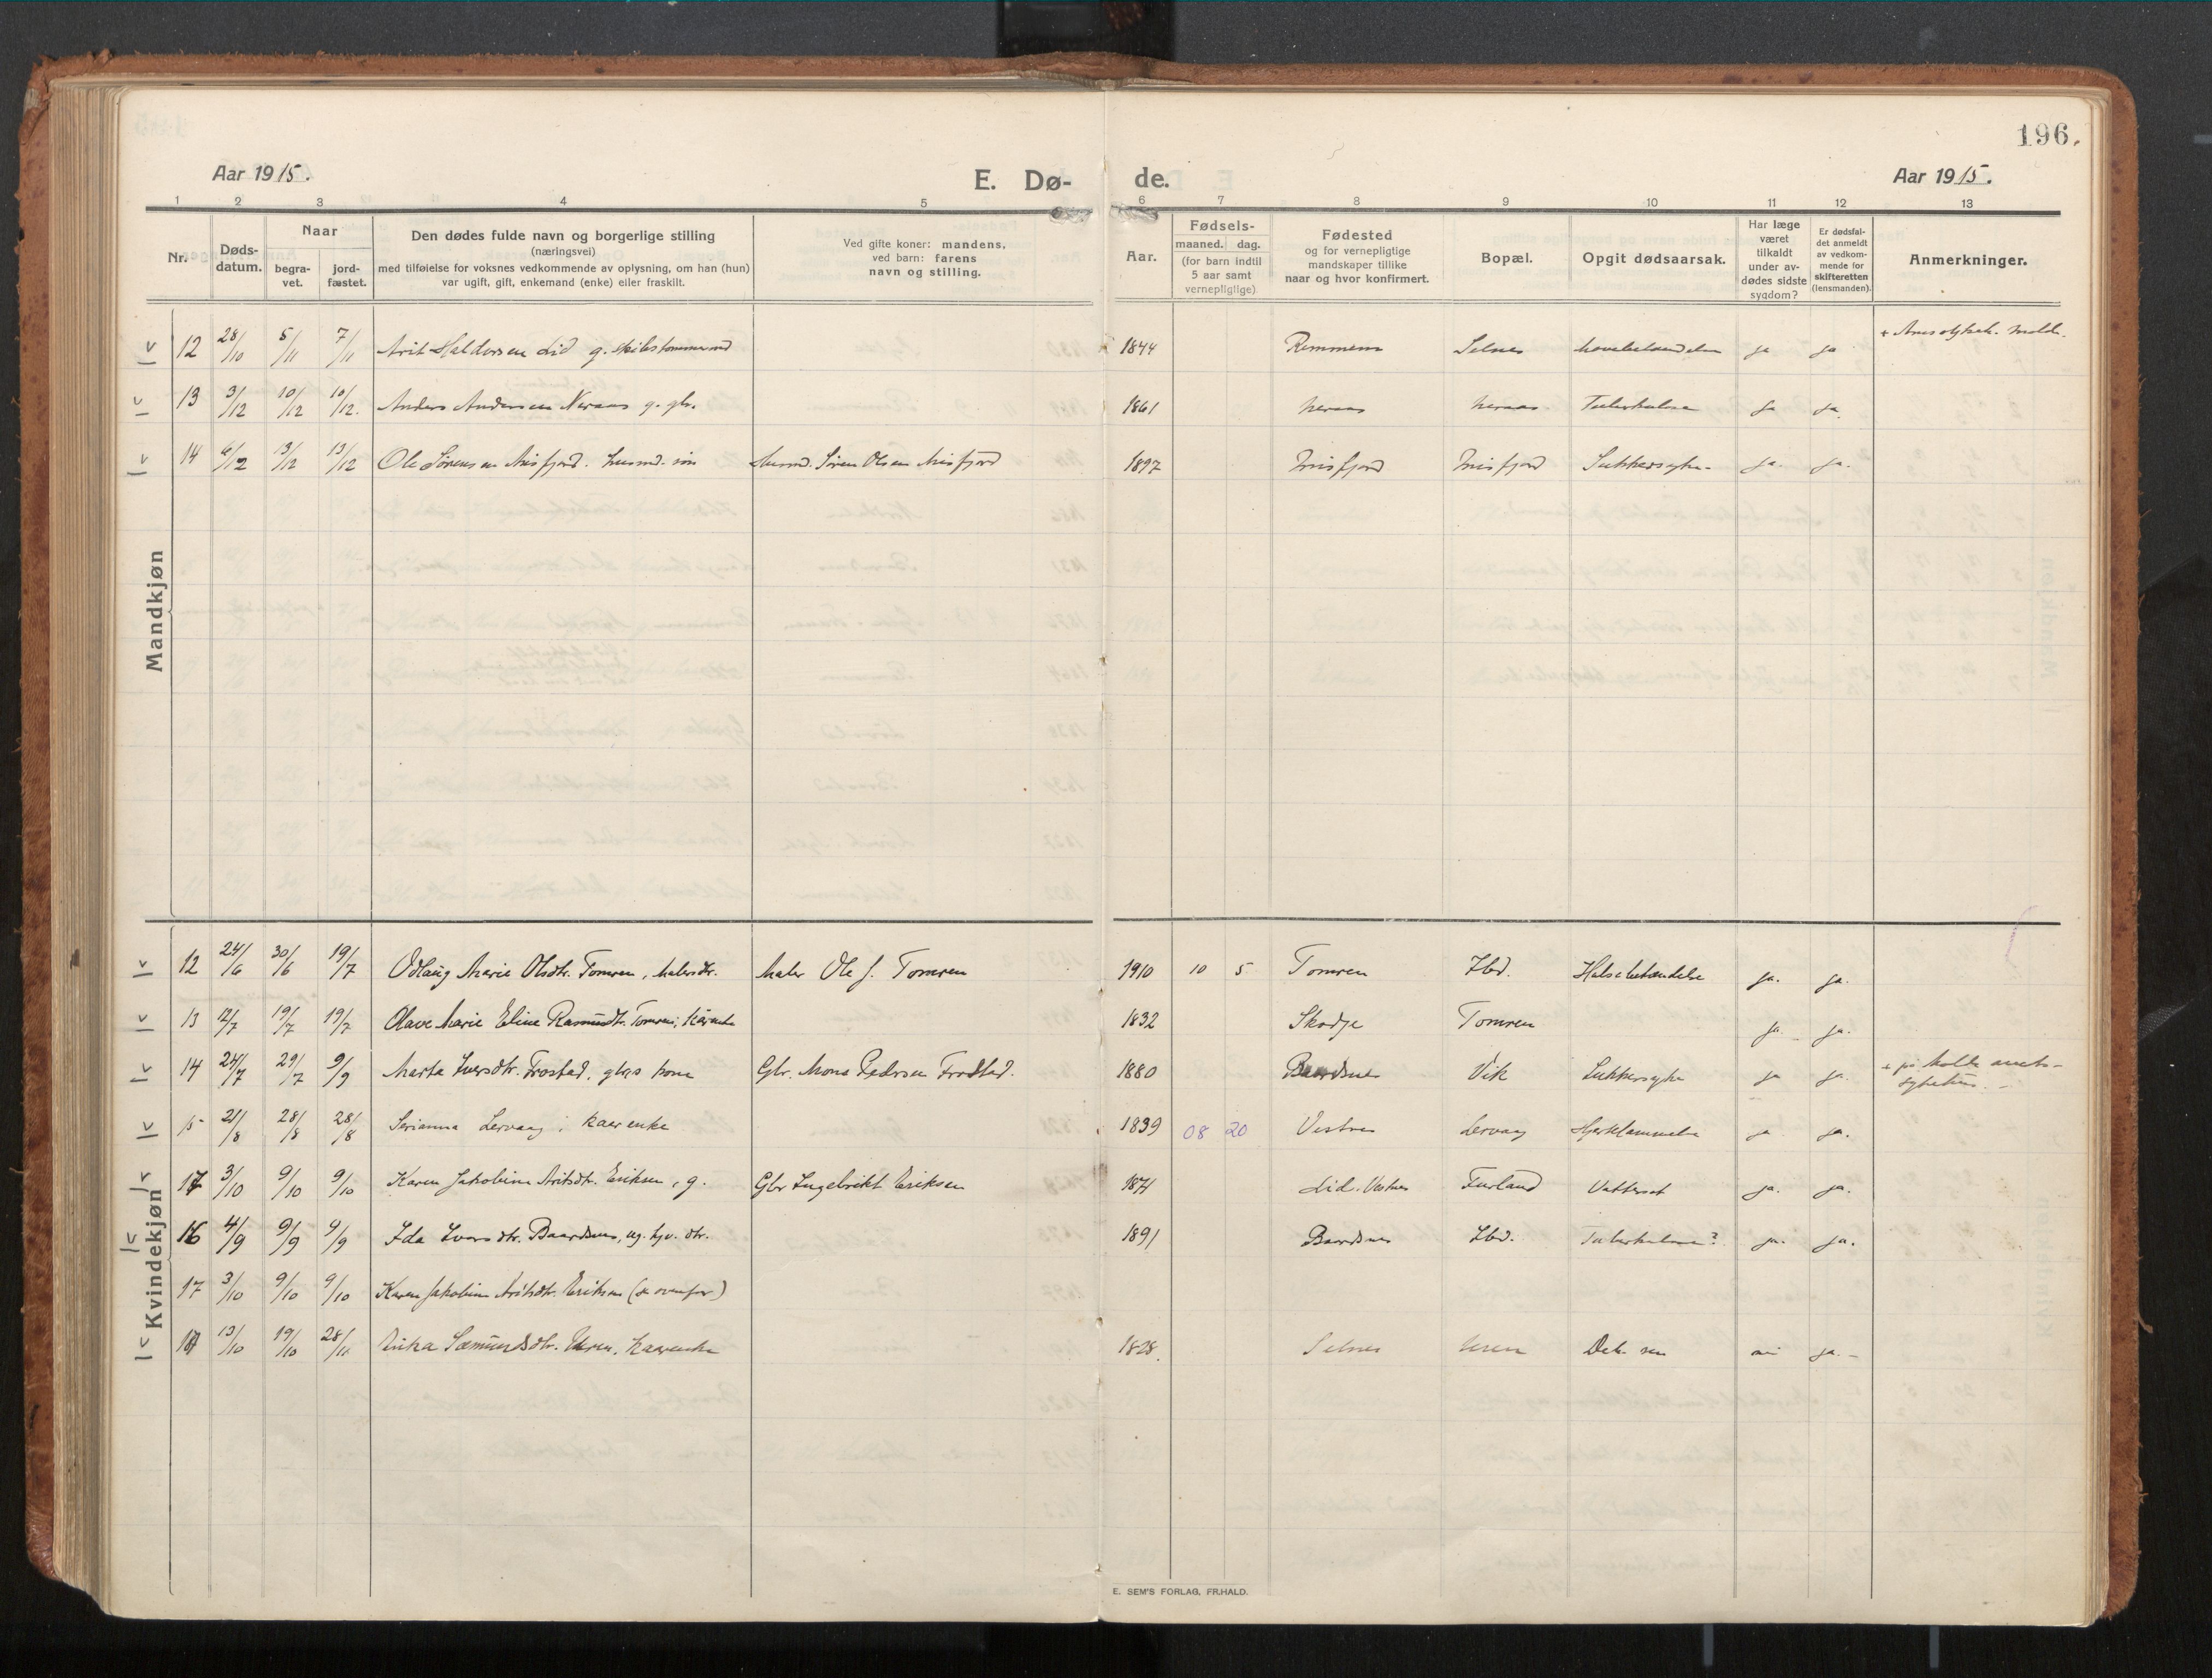 196.
Aar 1915.
E. Dø-
de.
Aar 1915.
1 2 3 4 5 6 7 8 9 10 11 12 13
Nr.
Døds-
datum.
Naar
begra-
vet.
jord-
fæstet.
Den dødes fulde navn og borgerlige stilling
(næringsvei)
med tilføielse for voksnes vedkommende av oplysning, om han (hun)
var ugift, gift, enkemand (enke) eller fraskilt.
Ved gifte koner: mandens,
ved barn: farens
navn og stilling.
Aar.
Fødsels-
maaned. dag.
(for barn indtil
5 aar samt
vernepligtige)
Fødested
og for vernepligtige
mandskaper tillike
naar og hvor konfirmert.
Bopæl.
Opgit dødsaarsak.
Har læge
været
tilkaldt
under av-
dødes sidste
sygdom?
Er dødsfal-
det anmeldt
av vedkom-
mende for
skifteretten
(lensmanden).
Anmerkninger.
Mandkjøn
12 28/10 5/11 7/11 Arit Haldorsen Lid g. 1844 Remmem Selnes ja ja
13 3/12 10/12 10/12. Anders Andersen Neraas g. gbr. 1861 Neraas Neraas Tuberkulose ja ja.
14 6/12 13/12 13/12 Ole Sørensen Misfjord. husmd. søn Husmd. Søren Olsen Misfjord 1897 Misfjord Misfjord Sukkersyke ja. ja.
Kvindekjøn
12 24/6 30/6 19/7 Odlaug Marie Olsdtr. Tomren, Malersdtr. Maler Ole J. Tomren 1910 10 5 Tomren Ibd. Halsebetændelse ja. ja.
13 12/7 19/7 19/7 Olave Marie Eline Rasmusdtr. Tomren, kårenke 1832 Skodje Tomren ja. ja.
14 24/7 29/7 9/9 Marta Iversdtr. Frostad, gbrs kone Gbr. Mons Pedersen Frostad. 1880 Baardsnes Vik Sukkersyke ja ja. + på Molde amts-
sykehus. -
15 21/8 28/8 28/8 Serianna Lervaag, kaarenke 1839 08 20 Vestnes Lervaag Hjertelammelse ja ja.
17 3/10 9/10 9/10 Karen Jakobine Aritsdtr. Eriksen, g. Gbr Ingebrikt Eriksen 1871 Lid. Vestnes Furland Vattersot ja. ja.
16 4/9 9/9 9/9 Ida Iversdtr. Baardsnes, ug. dtr. 1891 Baardsnes Ibd. Tuberkulose? ja. ja.
17 3/10 9/10 9/10 Karen Jakobine Aritsdtr. Eriksen (se ovenfor)
18 13/10 19/10 28/10 Erika Sæmundsdtr. Uren, kaarenke 1828. Selnes Uren nei ja. -
E. SEM'S FORLAG, FR.HALD.